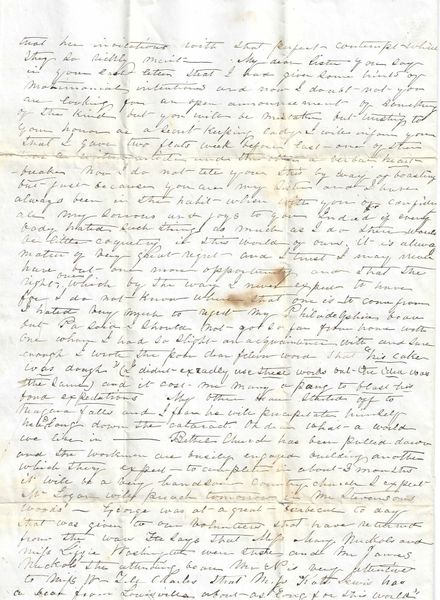 that her invitations with that perfect contempt which
they so richly merit My dear Sister you say
in your last letter that I had given some hints of
matrimonial intentions and now I doubt not you
are looking for an open announcement of something
of the kind but you will be mistaken but trusting to
your honor as a secret keeping Lady I will inform you
that I gave two flats week before last one of them
under the
Now I do not tell you this by way of boasting
but just because you are my Sister and I have
always been in the habit when with you of confiding
all my sorrows and joys to you Indeed if every
body hated such things as much as I do there would
be little coquetry in this world of ours. It is always
matter of very great regret and I trust I may never
have but one more opportunity and that the
right one, which by the way I never expect to have
for I do not know where that one is to come from
I hated very much to reject my Philadelphia beau
but Pa said I should not go so far from home with
one whom I had so slight an acquaintance with and sure
enough I wrote the poor dear fellow word that "his cake
was dough" (I didnt exactly use these words but the idea was
the same) and it cost me many a pang to blast his
fond expectations My other beau started off to
Niagara falls and I fear he will precipitate himself
headlong down the cataract Oh dear what a world
we live in Bethel Church has been pulled down
and the workmen are busily engaged building another
which they expect to complete in about 2 months
it will be a very handsome country church I expect
Mr Logan will preach tomorrow in Mr Stevensons
woods George was at a great Barbecue to day
that was given to our Volunteers that have returned
from the war He says that Miss Mary Nuckols and
Miss Lizzie Washington were there and Mr James
Nuckols the attending beau Mr N is very attentive
to Miss W Lily Charles that Miss Kath Lewis has
a beau from Louisville about as long for this world"